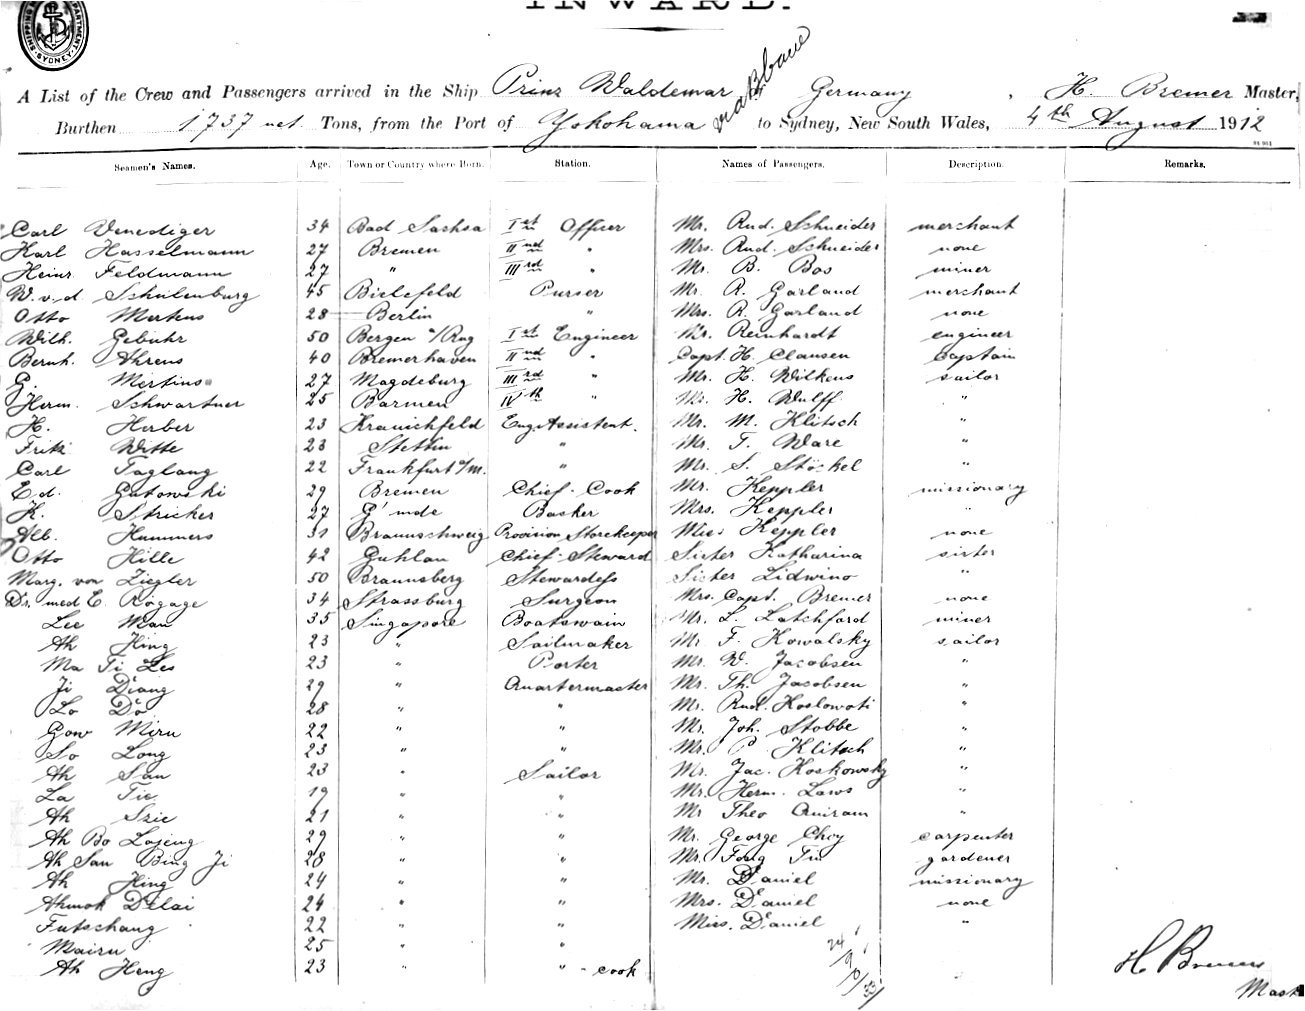 INWARD.
SHIPPING DEPARTMENT. SYDNEY.
A List of the Crew and Passengers arrived in the Ship Prinz Waldemar via Bbane Germany, H. Bremer Master,
Burthen 1737 net Tons, from the Port of Yokohama to Sydney, New South Wales, 4th August 1912
Seamen's Names. Age. Town or Country where Born. Station. Names of Passengers. Description. Remarks.
Carl Venediger 34 Bad Sachsa Ist Officer Mr. Rud. Schneider merchant
Karl Hasselmann 27 Bremen IInd " Mrs. Rud. Schneider none
Heinr. Feldmann 27 " IIIrd " Mr. B. Bos miner
W. v. d. Schulenburg 45 Bielefeld Purser Mr. R. Garland merchant
Otto Mertens 28 Berlin " Mrs. R. Garland none
Wilh. Gebuhr 50 Bergen a/Rug Ist Engineer Mr. Reinhardt engineer
Bernh. Ahrens 40 Bremerhaven IInd " Capt. H. Clausen Captain
G. Mertins 27 Magdeburg IIIrd " Mr. H. Wilkens sailor
Herm. Schwartner 25 Barmen IVth " Mr. H. Wulff "
H. Herber 23 Kranichfeld Eng. Assistent. Mr. M. Klitsch "
Fritz Witte 23 Stettin " Mr. T. Ware "
Carl Taglang 22 Frankfurt a/M. " Mr. S. Stöckel "
Ed. Gutowski 29 Bremen Chief Cook Mr. Keppler missionary
K. Stricker 27 G'mde Basker Mrs. Keppler "
Alb. Hammers 31 Braunschweig Provision Storekeeper Miss Keppler none
Otto Hille 42 Guhlau Chief Steward Sister Katharina sister
Marg. von Ziegler 50 Braunsberg Stewardess Sister Lidwino "
Dr. med E. Rogage 34 Strassburg Surgeon Mrs. Capt. Bremer none
Lee Man 35 Singapore Boatswain Mr. L. Latchford miner
Ah King 23 " Sailmaker Mr F. Kowalsky sailor
Ma Ti Les 23 " Porter Mr. W. Jacobsen "
Ji Diang 29 " Quartermaster Mr. Th. Jacobsen "
Lo Do 28 " " Mr. Rud. Koslowoti "
Gow Miru 22 " " Mr. Joh. Stobbe "
So Long 23 " " Mr. P. Klitsch "
Ah San 23 " Sailor Mr. Jac. Koskowsky "
La Tie 19 " " Mr. Herm. Laws "
Ah Szie 21 " " Mr Theo Quiram "
Ah Bo Lojeng 29 " " Mr. George Choy carpenter
Ah San Bing Ji 28 " " Mr. Fong Tu gardener
Ah King 24 " " Mr. Daniel missionary
Ahmok Delai 24 " " Mrs. Daniel none
Futschang 22 " " Miss. Daniel "
Mairu 25 " "
Ah Heng 23 " " - cook
H Bremer
Mast